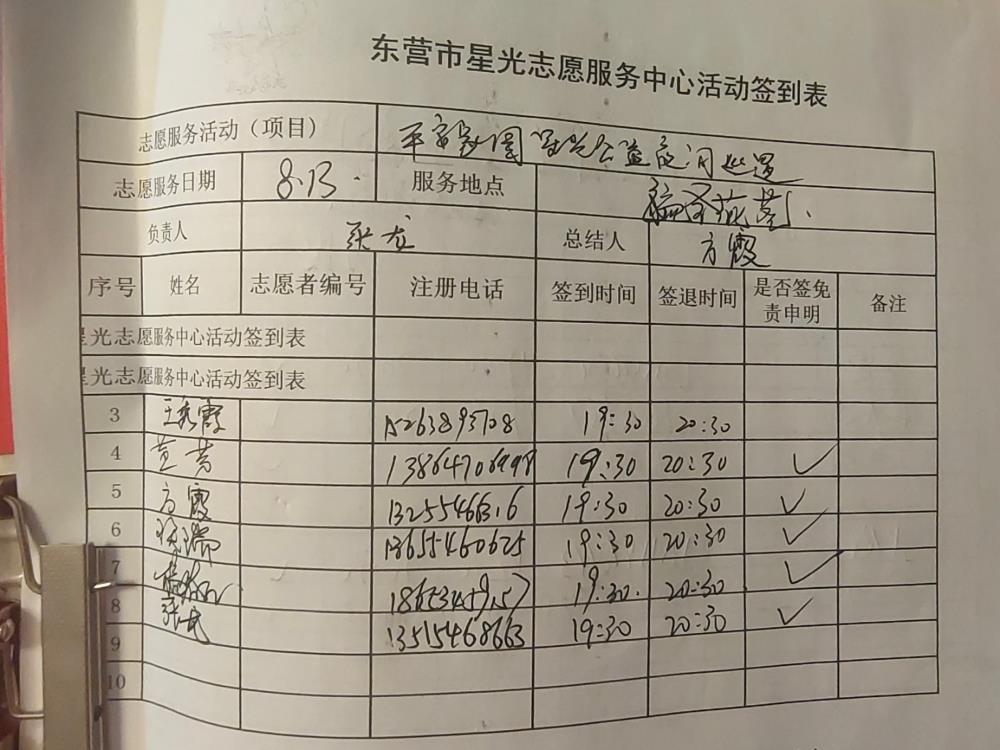 东营市星光志愿服务中心活动签到表
志愿服务活动（项目） 平安家园星光公益夜间巡逻
志愿服务日期 8.13. 服务地点
负责人 张龙 总结人 方霞
序号 姓名 志愿者编号 注册电话 签到时间 签退时间 是否签免责申明 备注
星光志愿服务中心活动签到表
星光志愿服务中心活动签到表
3 王秀霞 15263893708 19:30 20:30
4 13864706998 19:30 20:30 ✓
5 方霞 19:30 20:30 ✓
6 13655460625 19:30 20:30 ✓
7 19:30. 20:30 ✓
8 张龙 13515468663 19:30 20:30 ✓
9
10